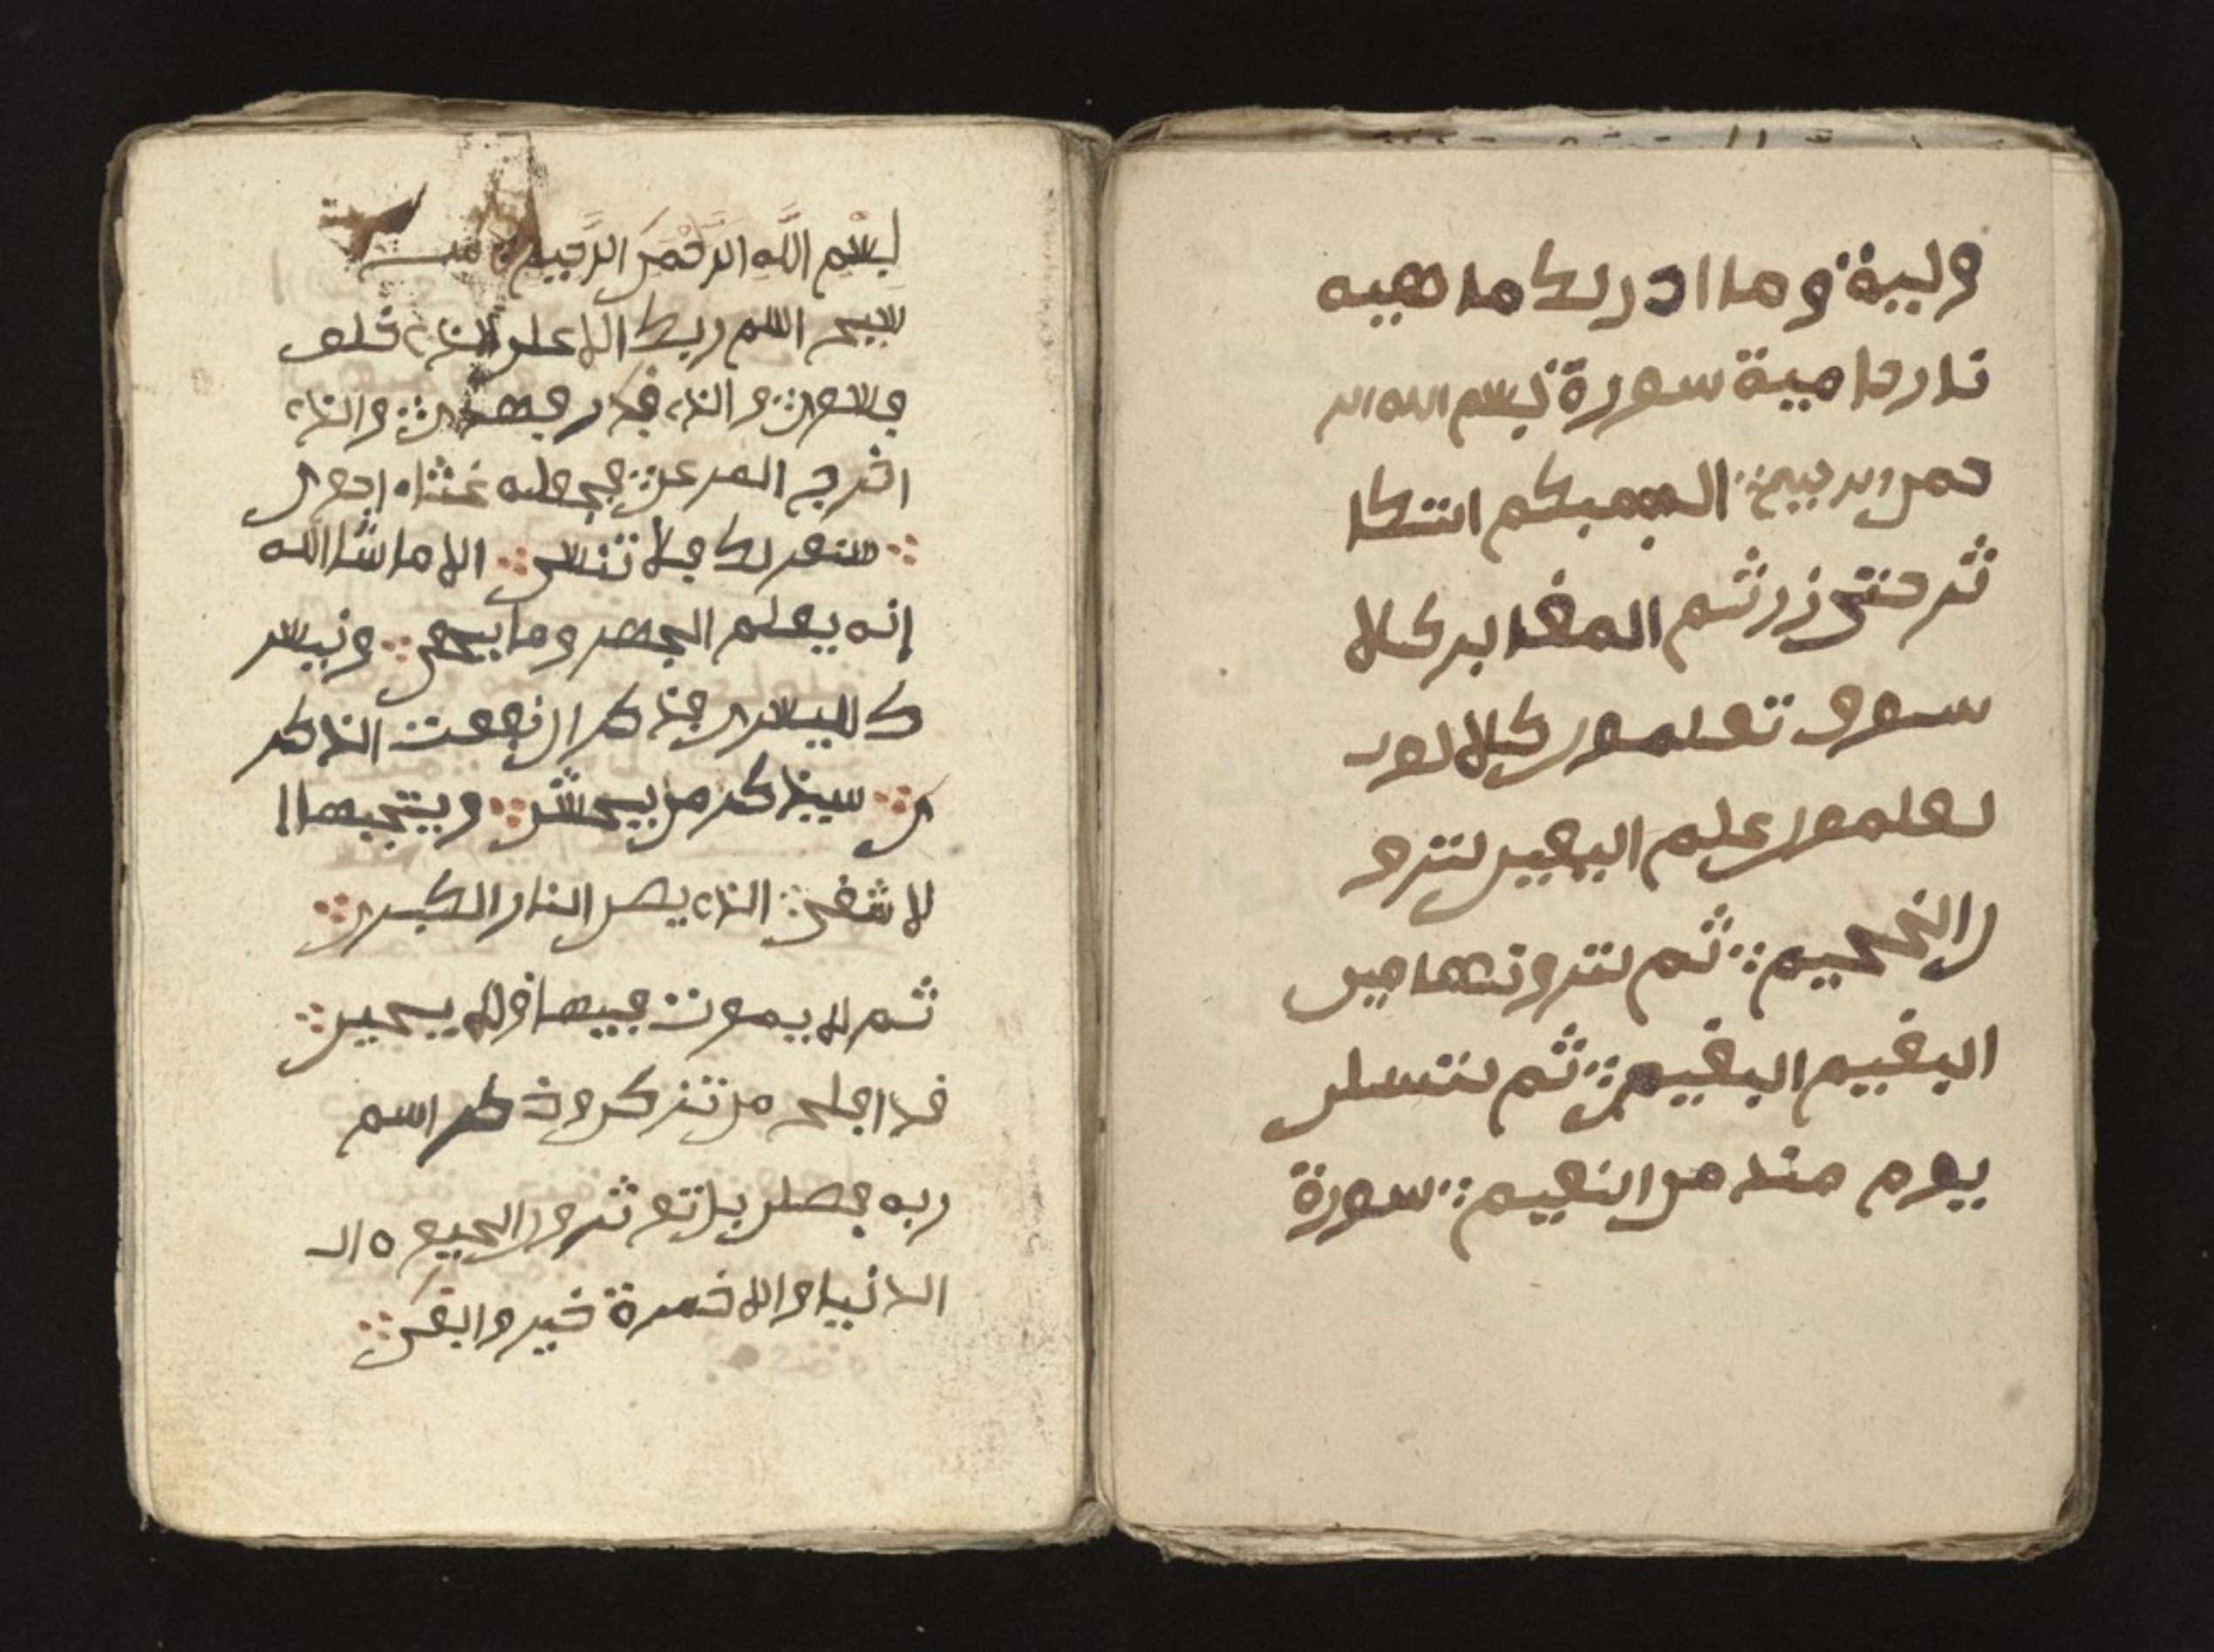 وليية وما ادريك ما هييه
نار حامية سورة بسم الله الر
حمن الرحيم الهيكم التكا
ثر حتى زرتم المقابر كلا
سوف تعلمون كلا لو
تعلمون علم اليقين لترو
ن الجحيم ثم لترونها عين
اليقيم اليقيم ثم لتسلن
يوم مئذ عن النعيم سورة
بِسْمِ اللَّهِ الرَّحْمَنِ الرَّحِيمِ
سبح اسم ربك الاعلى الذى خلق
فسوى والذى قدر فهدى والذى
اخرج المرعى فجعله غثاء احوى
سنقريك فلا تنسى الا ما شا الله
إنه يعلم الجهر وما يخفى ونيسر
ك لليسرى فذكر ان نفعت الذكر
ى سيذكر من يخشى ويتجنبها ا
لاشقى الذى يصلى النار الكبرى
ثم لا يموت فيها ولا يحيى
قد افلح من تزكى وذكر اسم
ربه فصلى بل توثرون الحيوة ال
الدنيا والاخرة خير وابقى